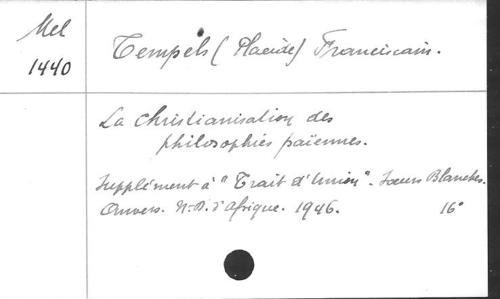 Mel
1440
Tempels (Placide) Franciscain.
La Christianisation des
philosophies païennes.
Supplément à "Trait d'Union". Soeurs Blanches.
Anvers. N.-D. d'Afrique. 1946. 16°